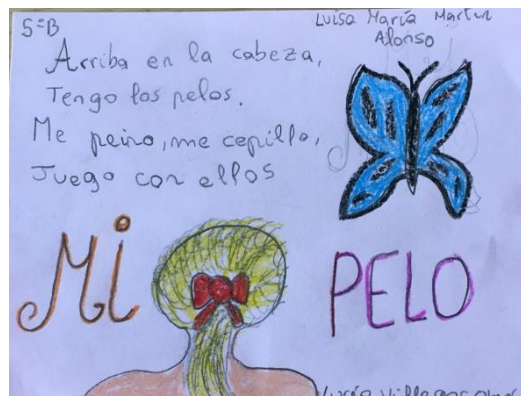 5ºB
Luisa María Martín
Alonso
Arriba en la cabeza,
Tengo los pelos.
Me peino, me cepillo,
Juego con ellos
Mi PELO
Lucía Villegas